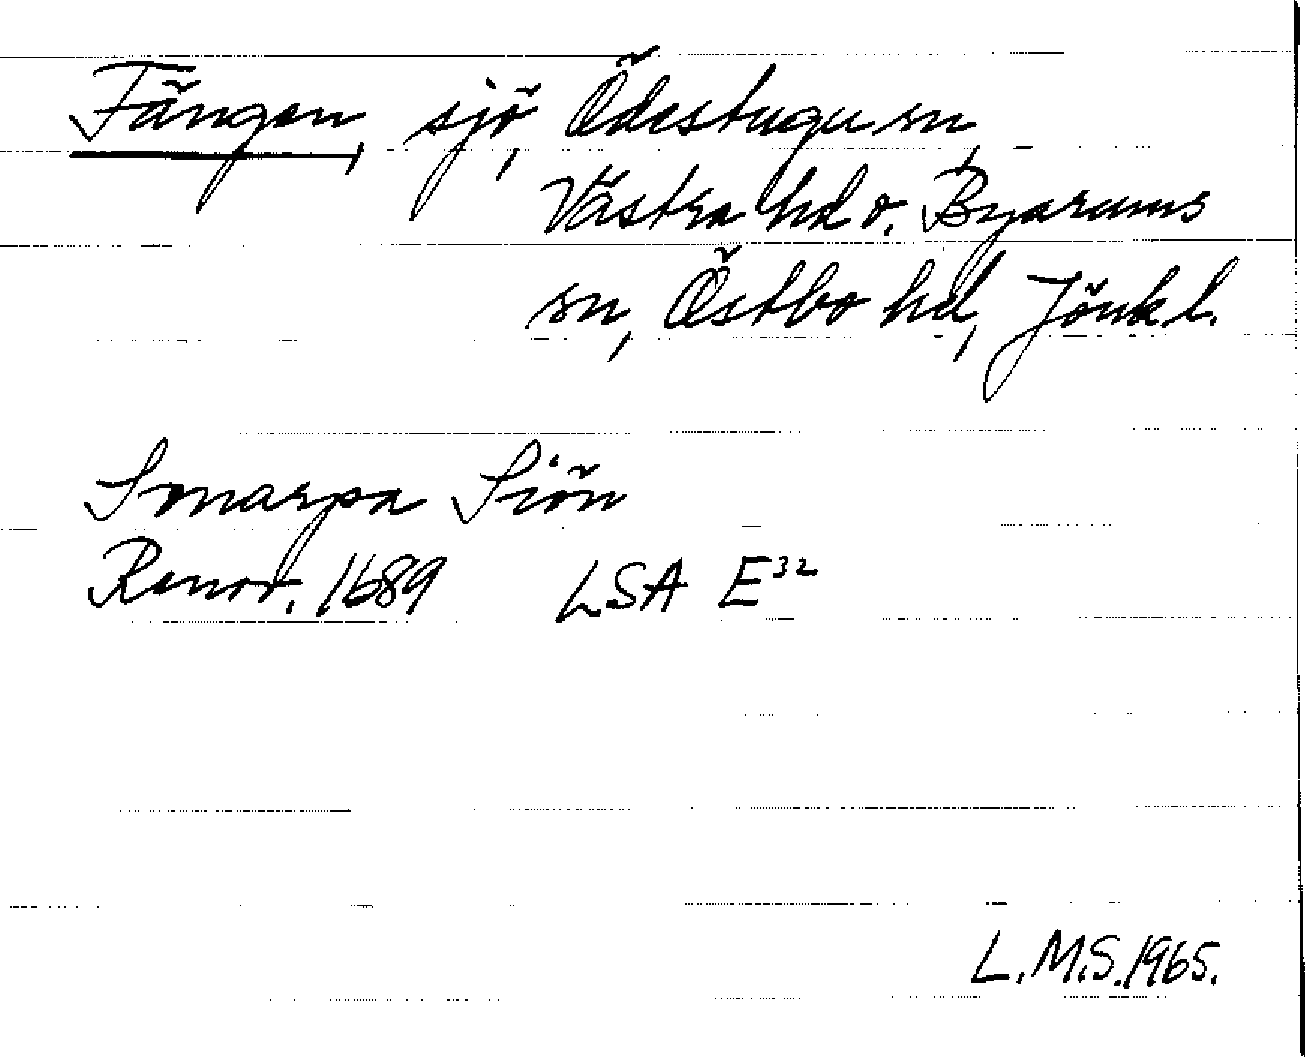 Fängen, sjö, Ödestugu sn,
Västra hd o. Byarums
sn, Östbo hd, Jönk l.
Smarpa Siön
Renov. 1689 LSA E³²
L.M.S. 1965.